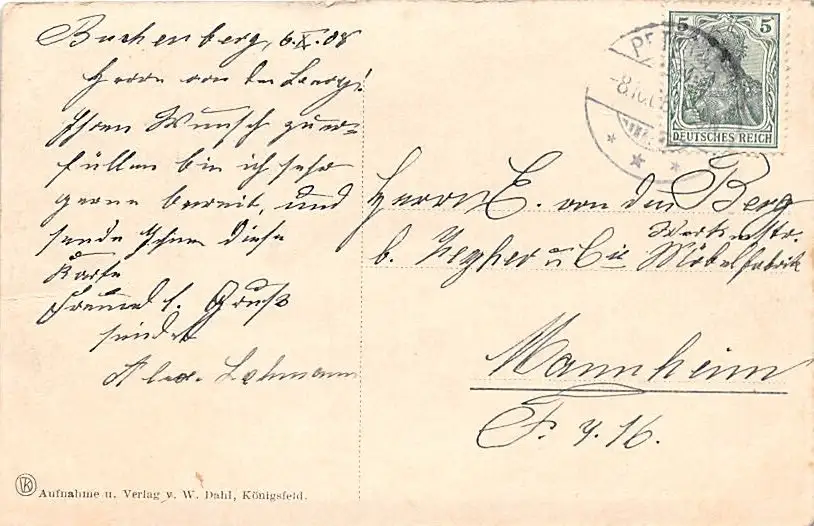 Buchenberg, 6.X.08
Herrn von der Berg!
Ihren Wunsch zu er-
füllen bin ich sehr
gerne bereit, und
sende Ihnen diese
Karte
Freundl. Gruß
sendet
Alex. Lehmann
PET
-8.10.0
5 5
DEUTSCHES REICH
Herrn E. von der Berg
Werkmstr.
b. u. Cie Möbelfabrik
Mannheim
F. 4. 16.
Aufnahme u. Verlag v. W. Dahl, Königsfeld.